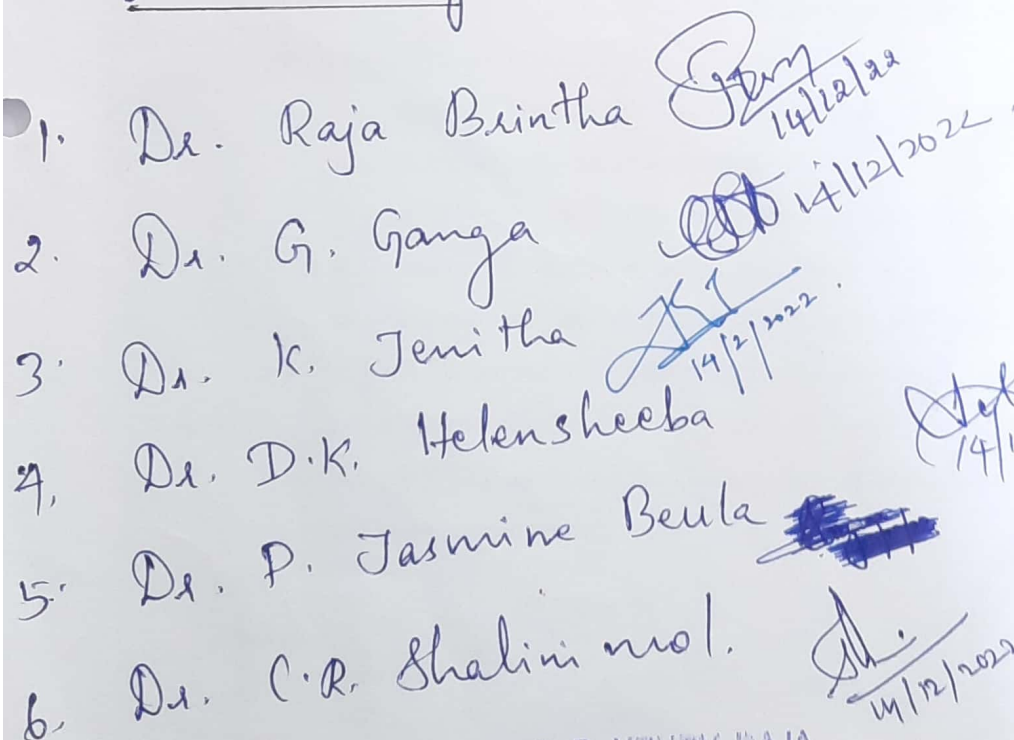 1. Dr. Raja Brintha 14/12/22
2. Dr. G. Ganga 14/12/2022
3. Dr. K. Jenitha 14/2/2022
4. Dr. D.K. Helensheeba 14/1
5. Dr. P. Jasmine Beula
6. Dr. C.R. Shalini mol. 14/12/2022